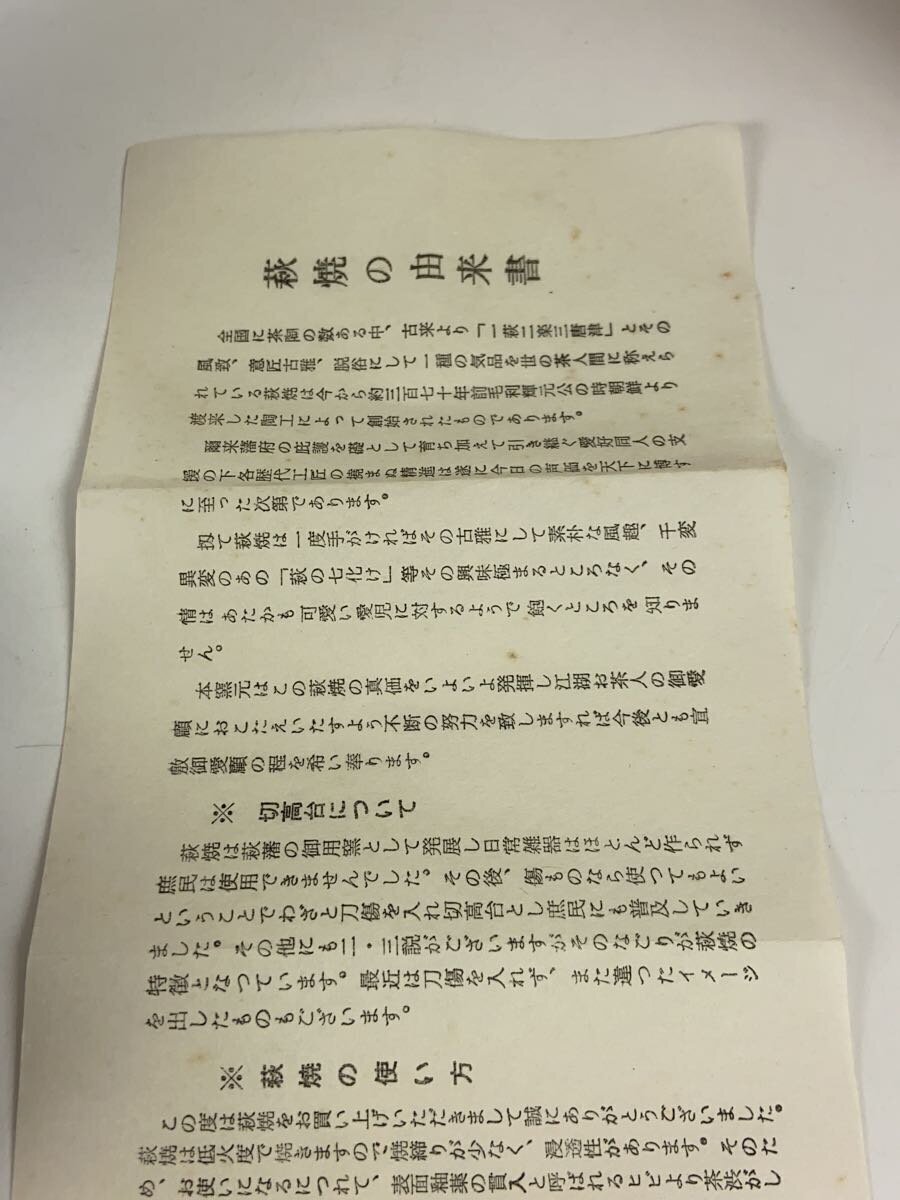 萩焼の由来書
全国に茶陶の数ある中、古来より「一萩二楽三唐津」とその
風致、意匠古雅、脱俗にして一種の気品を世の茶人間に称えら
れている萩焼は今から約三百七十年前毛利輝元公の時朝鮮より
渡来した陶工によって創始されたものであります。
爾来藩府の庇護を礎として育ち加えて引き継ぐ愛好同人の支
援の下各歴代工匠の撓まぬ精進は遂に今日の声価を天下に博す
に至った次第であります。
扨て萩焼は一度手がければその古雅にして素朴な風趣、千変
異変のあの「萩の七化け」等その興味極まるところなく、その
情はあたかも可愛い愛児に対するようで飽くところを知りま
せん。
本窯元はこの萩焼の真価をいよいよ発揮し江湖お茶人の御愛
顧におこたえいたすよう不断の努力を致しますれば今後とも宜
敷御愛顧の程を希い奉ります。
※ 切高台について
萩焼は萩藩の御用窯として発展し日常雑器はほとんど作られず
庶民は使用できませんでした。その後、傷ものなら使つてもよい
ということでわざと刀傷を入れ切高台とし庶民にも普及していき
ました。その他にも二・三説がございますがそのなごりが萩焼の
特徴となつています。最近は刀傷を入れず、また違つたイメージ
を出したものもございます。
※ 萩焼の使い方
この度は萩焼をお買い上げいただきまして誠にありがとうございました。
萩焼は低火度で焼きますので焼締りが少なく、浸透性があります。そのた
め、お使いになるにつれて、表面釉薬の貫入と呼ばれるヒビより茶渋がし